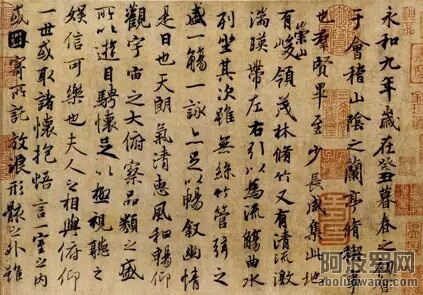 永和九年歲在癸丑暮春之初會
于會稽山陰之蘭亭脩禊事
也羣賢畢至少長咸集此地
有崇山峻領茂林脩竹又有清流激
湍暎帶左右引以為流觴曲水
列坐其次雖無絲竹管弦之
盛一觴一詠亦足以暢叙幽情
是日也天朗氣清惠風和暢仰
觀宇宙之大俯察品類之盛
所以遊目騁懷足以極視聽之
娛信可樂也夫人之相與俯仰
一世或取諸懷抱悟言一室之內
或因寄所託放浪形骸之外雖
阿波罗网
aboluowang.com